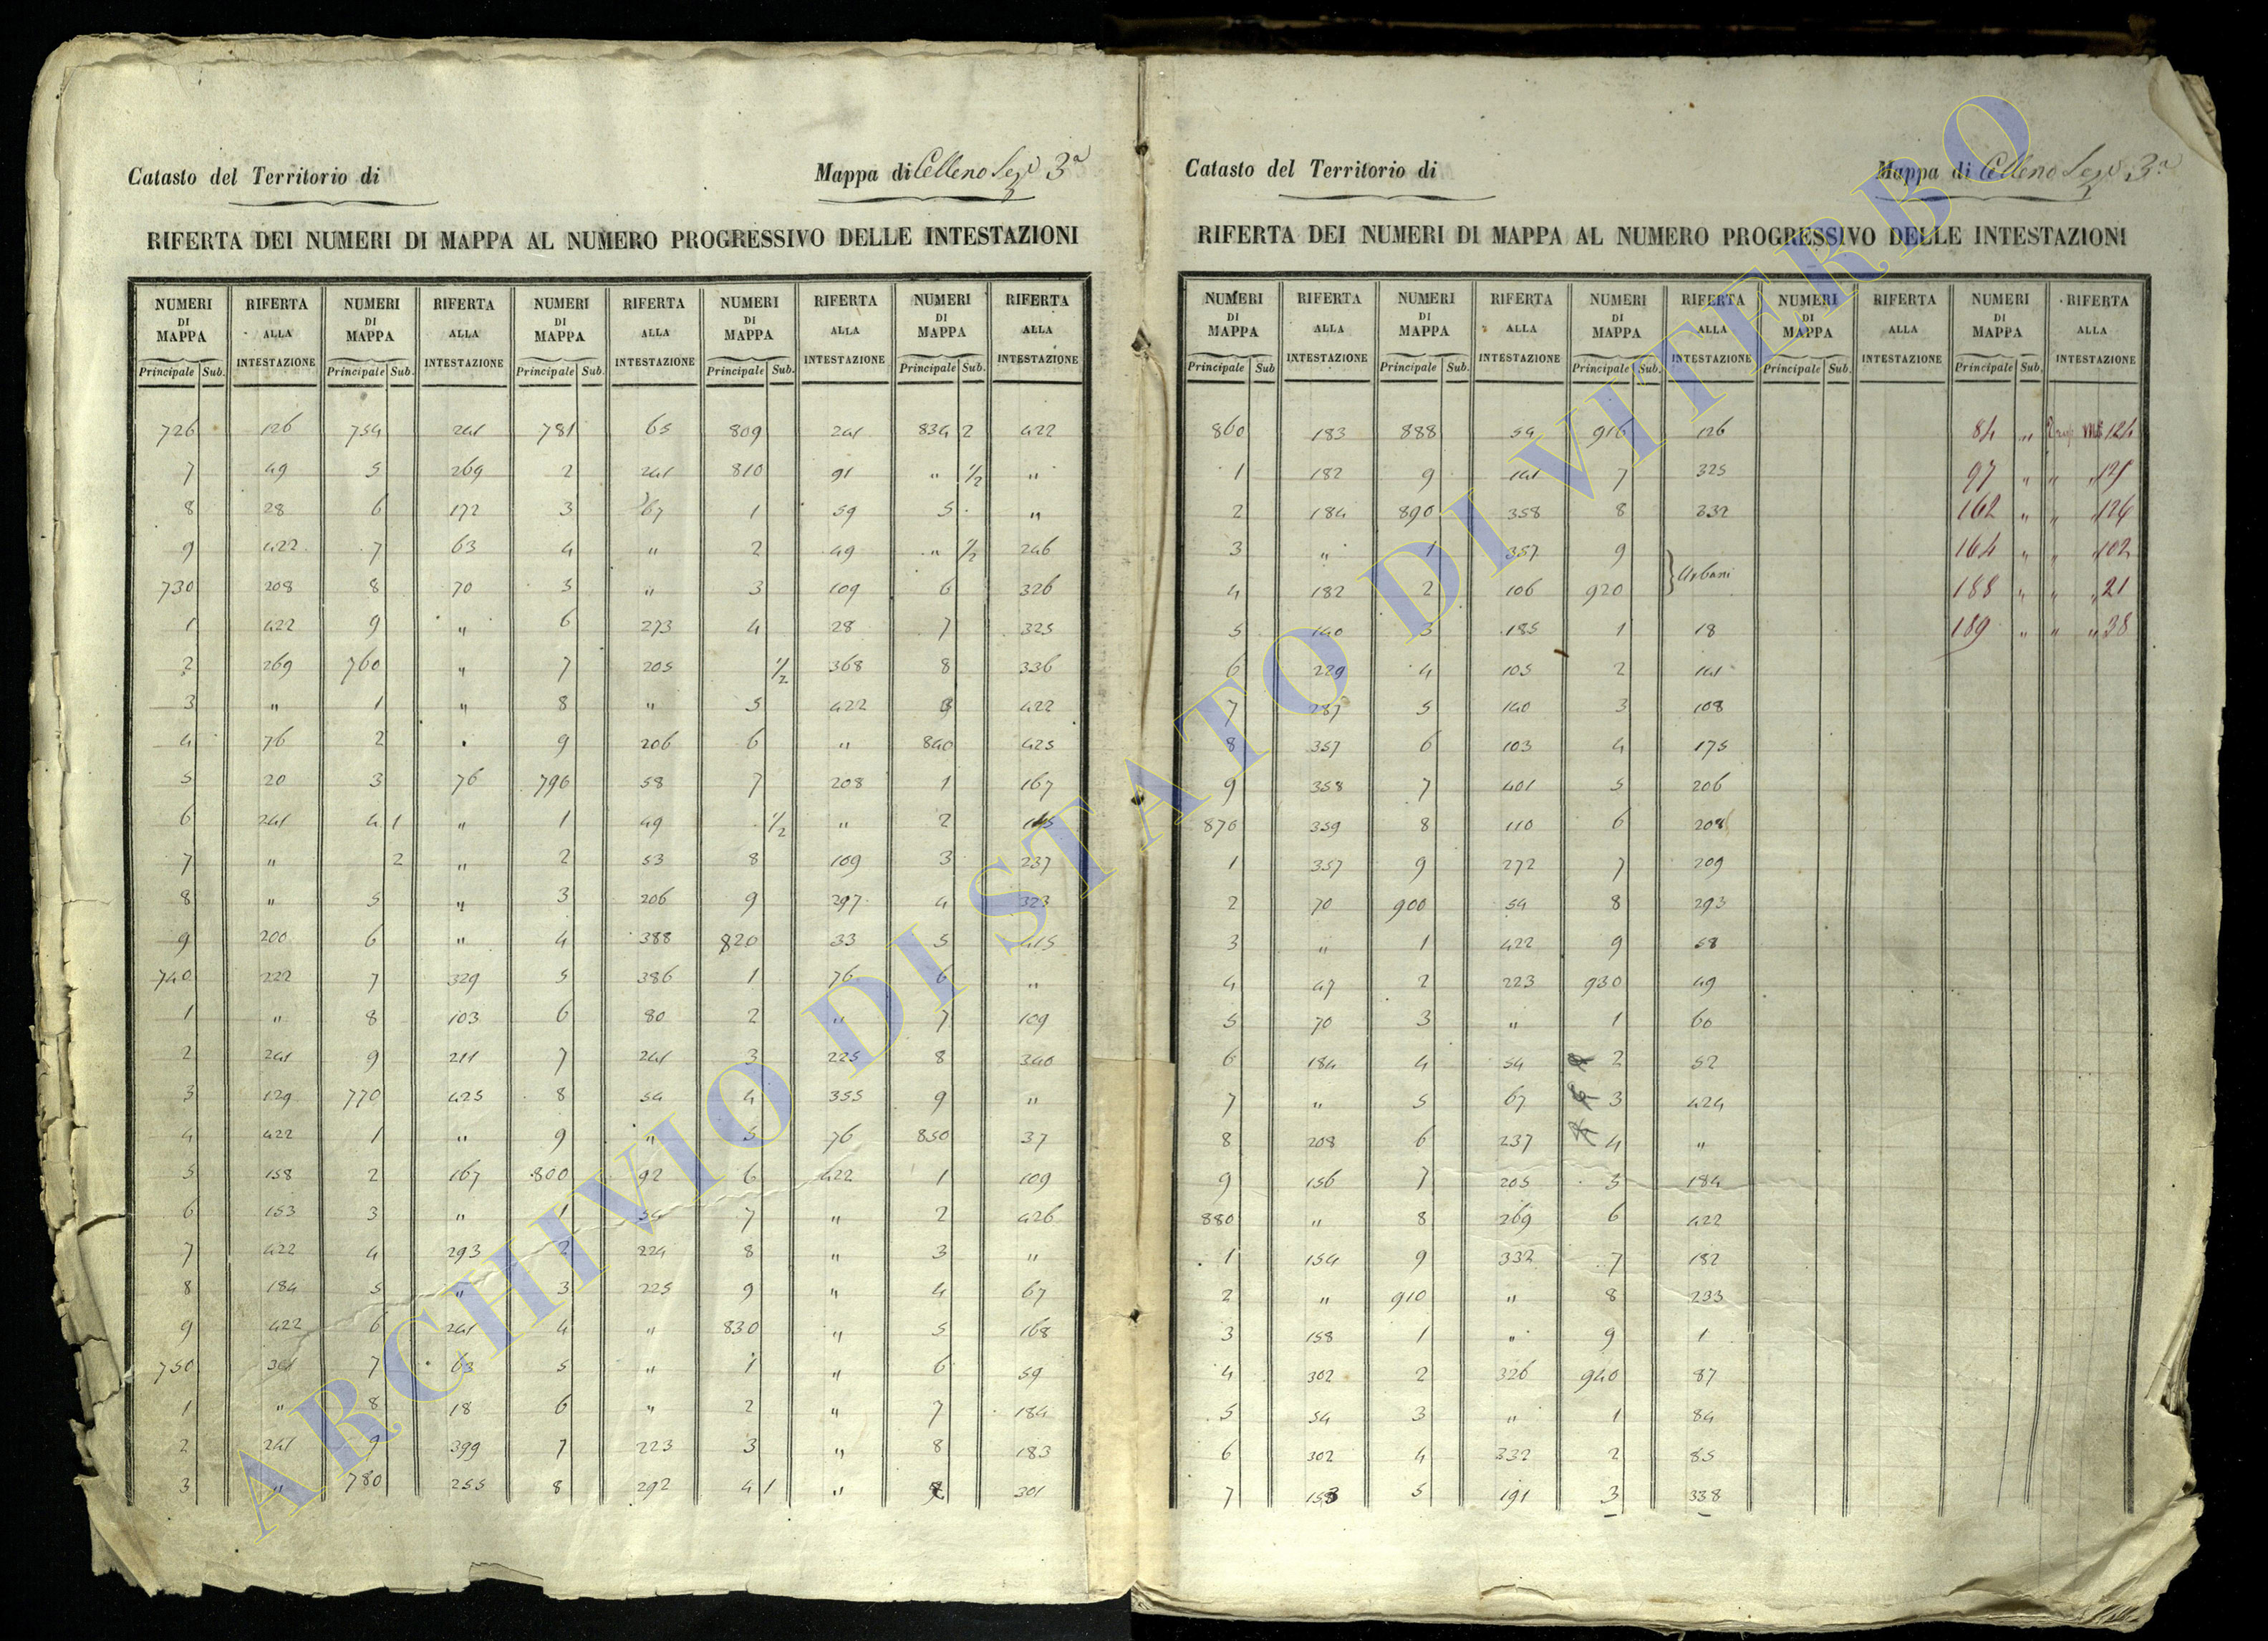 Catasto del Territorio di
Mappa di Celleno Sez. 3ª
RIFERTA DEI NUMERI DI MAPPA AL NUMERO PROGRESSIVO DELLE INTESTAZIONI
NUMERI DI MAPPA RIFERTA ALLA INTESTAZIONE NUMERI DI MAPPA RIFERTA ALLA INTESTAZIONE NUMERI DI MAPPA RIFERTA ALLA INTESTAZIONE NUMERI DI MAPPA RIFERTA ALLA INTESTAZIONE NUMERI DI MAPPA RIFERTA ALLA INTESTAZIONE
Principale Sub. Principale Sub. Principale Sub. Principale Sub. Principale Sub.
726 126 754 241 781 65 809 241 834 2 422
7 49 5 269 2 241 810 91 " 1/2 "
8 28 6 172 3 67 1 59 5 "
9 422 7 63 4 " 2 49 " 1/2 246
730 208 8 70 5 " 3 109 6 326
1 422 9 " 6 273 4 28 7 325
2 269 760 " 7 205 1/2 368 8 336
3 " 1 " 8 " 5 422 9 422
4 76 2 " 9 206 6 " 840 425
5 20 3 76 790 58 7 208 1 167
6 241 4 1 " 1 49 1/2 " 2
7 " 2 " 2 53 8 109 3 237
8 " 5 " 3 206 9 297 4 323
9 200 6 " 4 388 820 33 5 415
740 222 7 329 5 386 1 76 6 "
1 " 8 103 6 80 2 " 7 109
2 241 9 211 7 241 3 225 8 340
3 129 770 425 8 54 4 355 9 "
4 422 1 " 9 " 5 76 850 37
5 158 2 167 800 92 6 422 1 109
6 153 3 " 1 54 7 " 2 426
7 422 4 293 2 224 8 " 3 "
8 184 5 " 3 225 9 " 4 67
9 422 6 241 4 " 830 " 5 168
750 301 7 63 5 " 1 " 6 59
1 " 8 18 6 " 2 " 7 184
2 241 9 399 7 223 3 " 8 183
3 " 780 255 8 292 4 1 " 9 301
Catasto del Territorio di
Mappa di Celleno Sez. 3ª
RIFERTA DEI NUMERI DI MAPPA AL NUMERO PROGRESSIVO DELLE INTESTAZIONI
NUMERI DI MAPPA RIFERTA ALLA INTESTAZIONE NUMERI DI MAPPA RIFERTA ALLA INTESTAZIONE NUMERI DI MAPPA RIFERTA ALLA INTESTAZIONE NUMERI DI MAPPA RIFERTA ALLA INTESTAZIONE NUMERI DI MAPPA RIFERTA ALLA INTESTAZIONE
Principale Sub Principale Sub. Principale Sub. Principale Sub. Principale Sub.
860 183 888 54 916 126 84 " 124
1 182 9 141 7 325 97 " "
2 184 890 358 8 232 162 " " " 124
3 " 1 357 9 164 " " " 102
4 182 2 106 920 } Urbani 188 " " " 21
5 140 3 185 1 18 189 " " " 38
6 229 4 105 2 141
7 287 5 140 3 108
8 357 6 103 4 175
9 358 7 401 5 206
870 359 8 110 6 208
1 357 9 272 7 209
2 70 900 54 8 293
3 " 1 422 9 58
4 47 2 223 930 49
5 70 3 " 1 60
6 184 4 54 2 52
7 " 5 67 3 424
8 208 6 237 4 "
9 156 7 205 5 184
880 " 8 269 6 422
1 154 9 332 7 182
2 " 910 " 8 233
3 158 1 " 9 1
4 302 2 326 940 87
5 54 3 " 1 84
6 302 4 332 2 85
7 153 5 191 3 338
ARCHIVIO DI STATO DI VITERBO